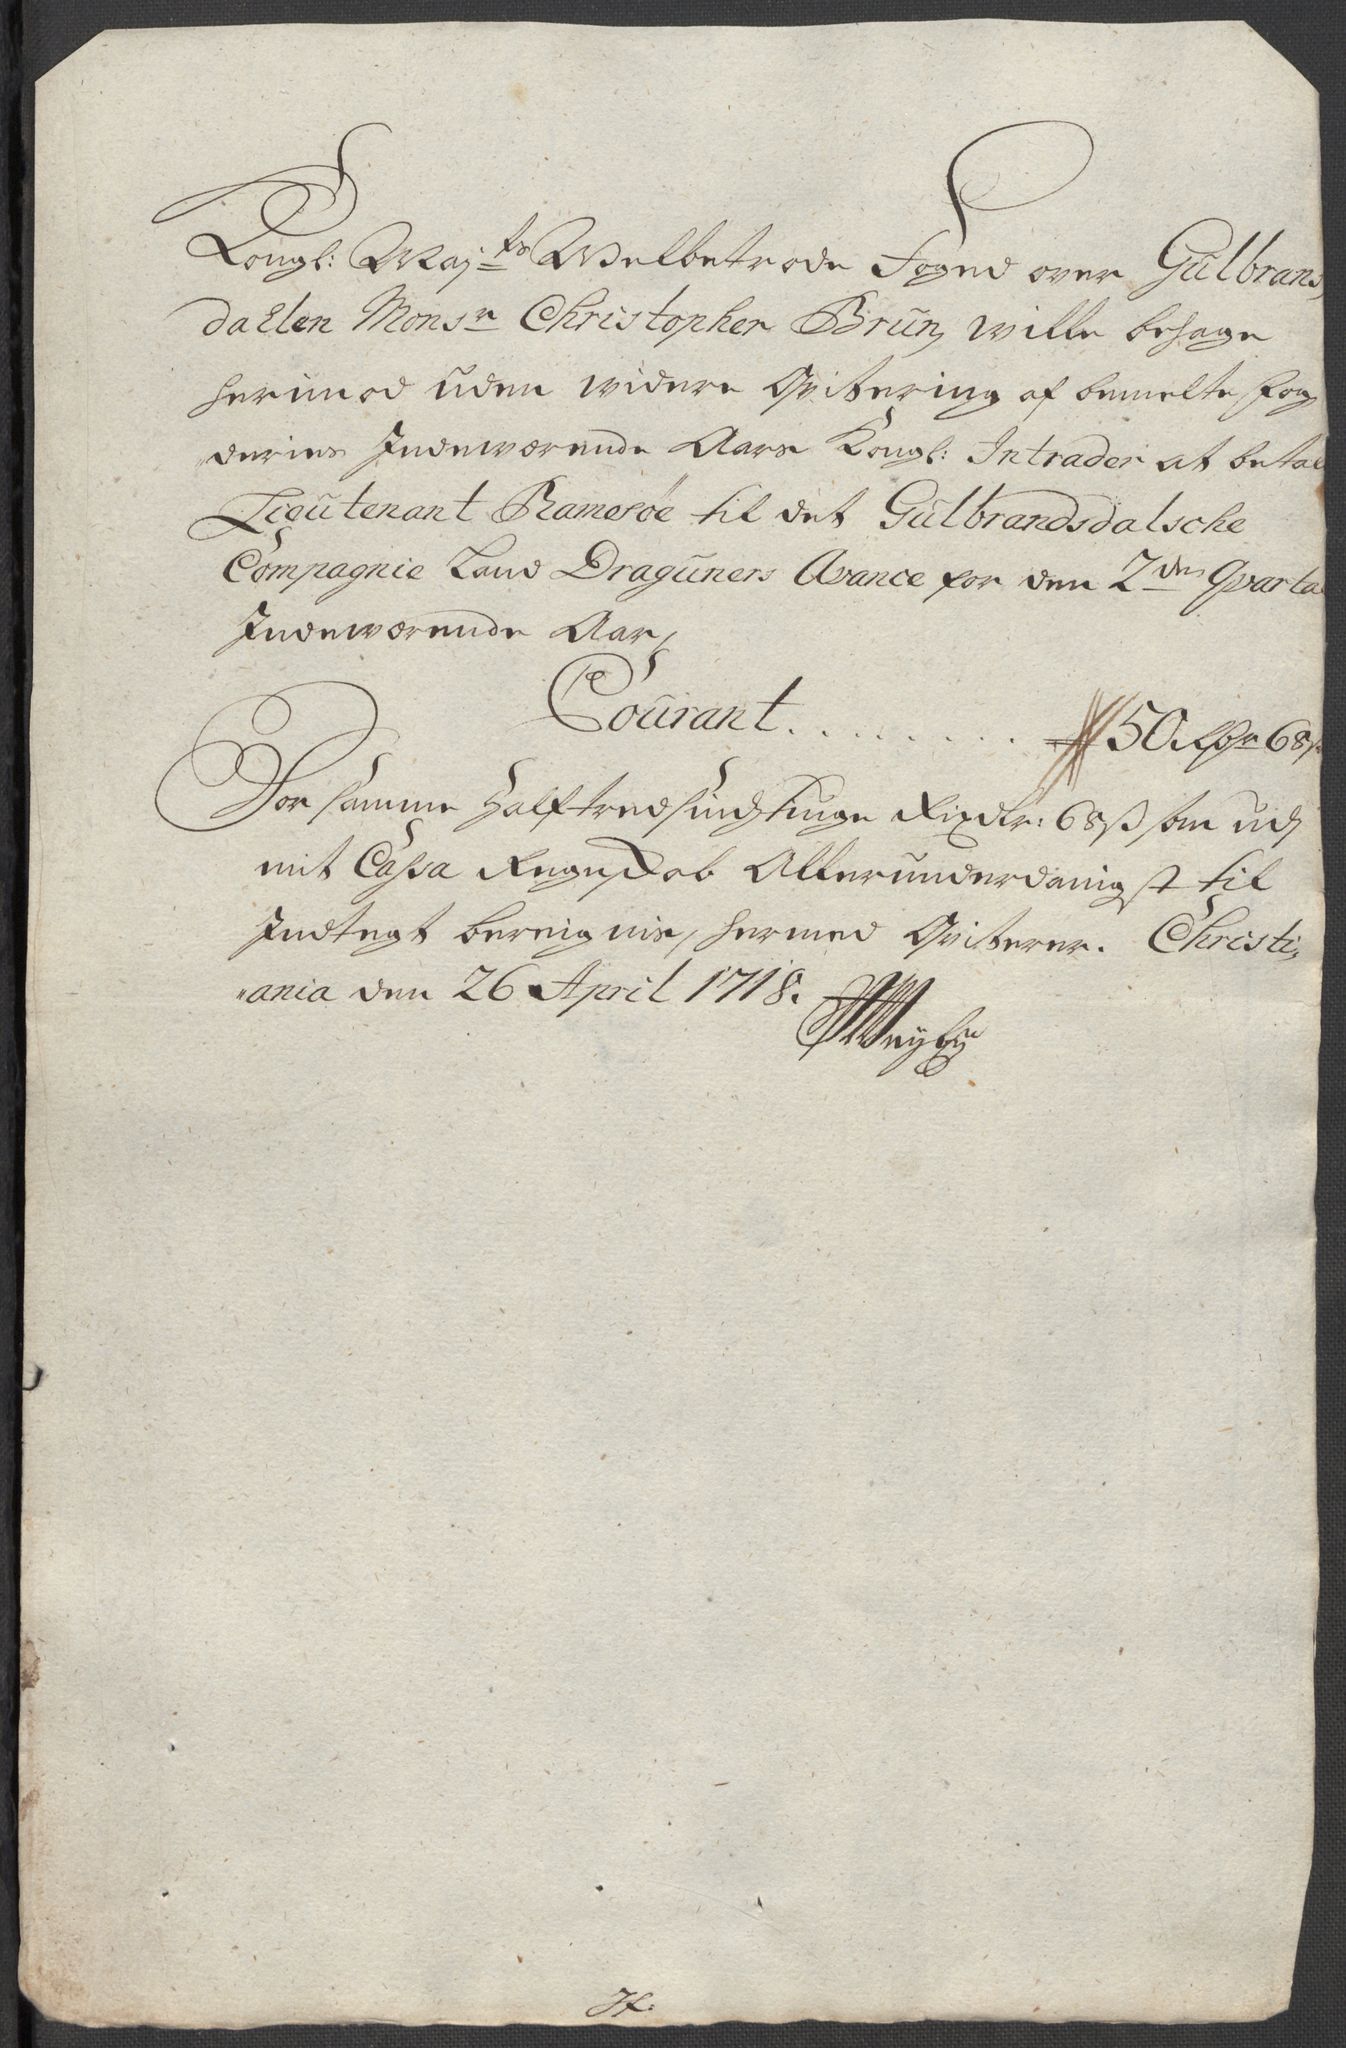 Kongl: Maj:ts Welbetrode Foged over Gulbrans
dahlen Monsr Christopher Brun, wille behage
herimod uden widere Qvitering af bemelte fog
deries Indewærende Aars Kongl: Intrader at betal
Lieutenant Ramsøe til det Gulbrandsdalsche
Compagnie Land Draguners Avance for den 2den Qvarta
Indewærende Aar,
Courant......... 50 Rdr 68ß
For samme Halftredsindstiuge Rixdlr: 68ß som udj
mit Cassa Regenskab Allerunderdanigst til
Indtegt bereignis, hermed Qviterer. Christi-
ania den 26 April 1718.